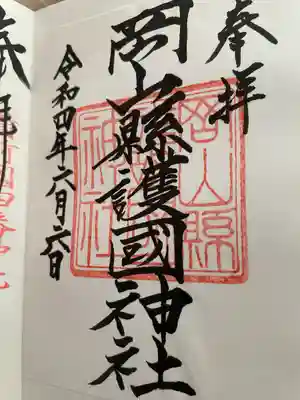 奉拝
岡山縣護國神社
令和四年六月六日
岡山縣
護國
神社
奉拝